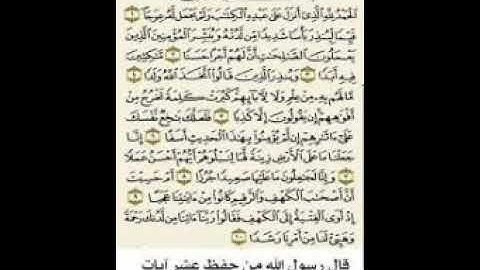 الحمد لله الذي أنزل على عبده الكتاب ولم يجعل له عوجا ١
قيما لينذر بأسا شديدا من لدنه ويبشر المؤمنين الذين
يعملون الصالحات أن لهم أجرا حسنا ٢ ماكثين
فيه أبدا ٣ وينذر الذين قالوا اتخذ الله ولدا ٤
ما لهم به من علم ولا لآبائهم كبرت كلمة تخرج من
أفواههم إن يقولون إلا كذبا ٥ فلعلك باخع نفسك
على آثارهم إن لم يؤمنوا بهذا الحديث أسفا ٦ إنا
جعلنا ما على الأرض زينة لها لنبلوهم أيهم أحسن عملا
٧ وإنا لجاعلون ما عليها صعيدا جرزا ٨ أم حسبت
أن أصحاب الكهف والرقيم كانوا من آياتنا عجبا ٩
إذ أوى الفتية إلى الكهف فقالوا ربنا آتنا من لدنك رحمة
وهيئ لنا من أمرنا رشدا ١٠
قال رسول الله من حفظ عشر آيات